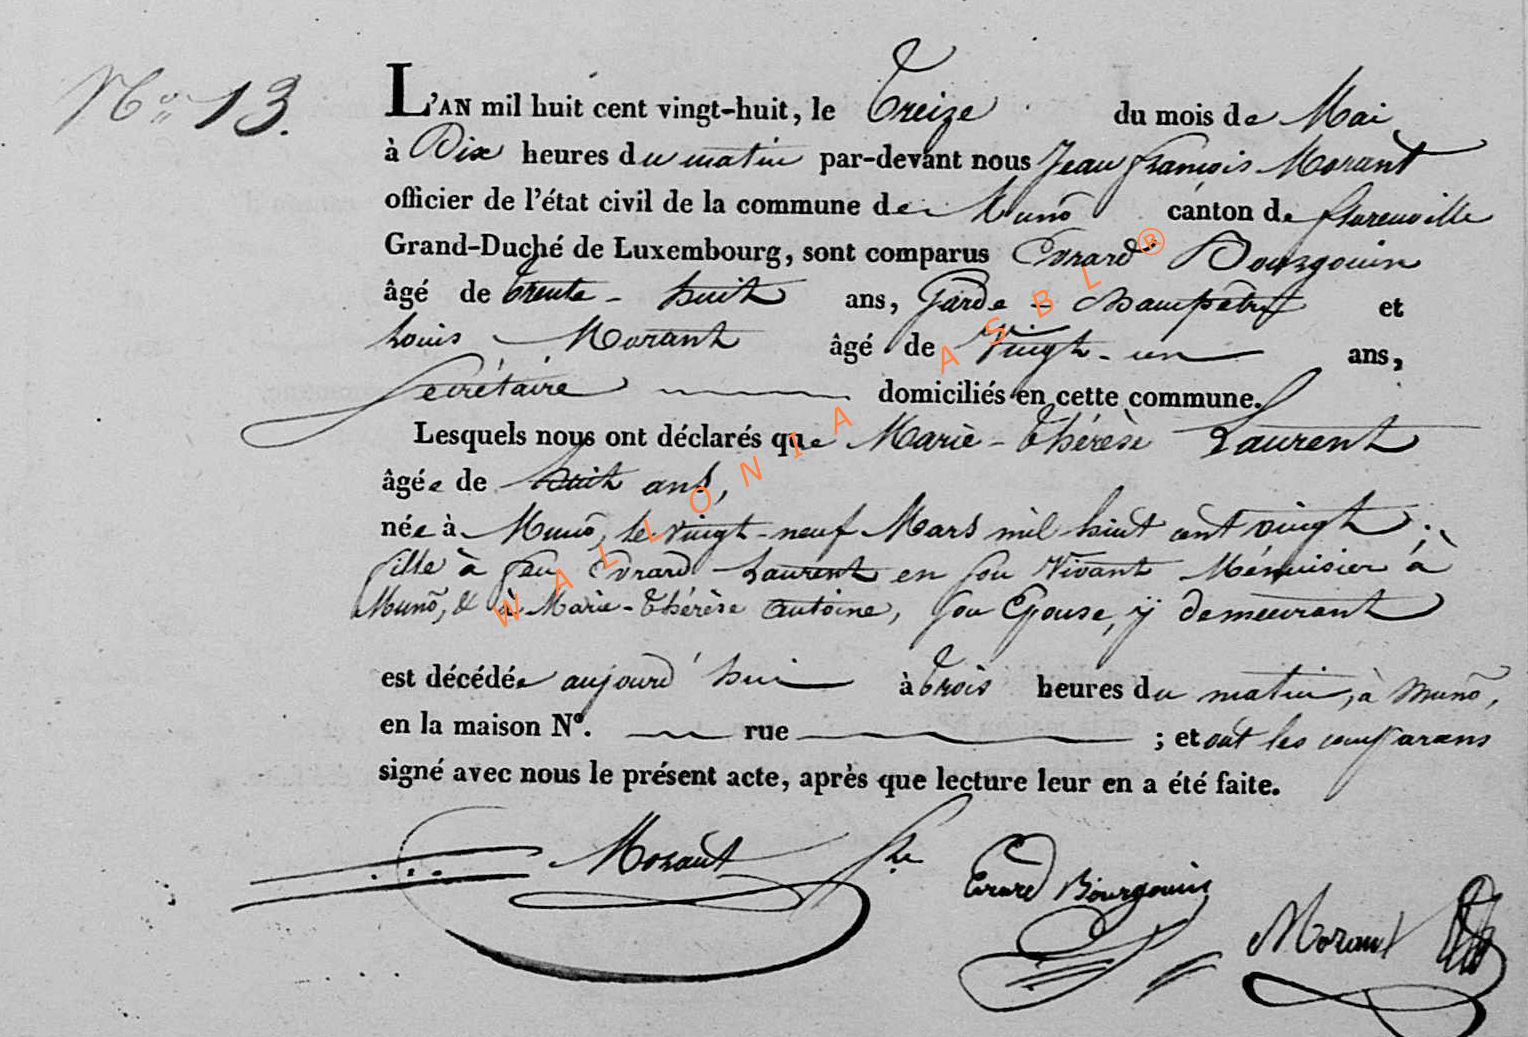 N.º 13.
L'AN mil huit cent vingt-huit, le Treize du mois de Mai
à Dix heures du matin par-devant nous Jean françois Morant
officier de l'état civil de la commune de Munô canton de florenville
Grand-Duché de Luxembourg, sont comparus Evrard Bourgouin
âgé de trente-huit ans, Garde-champêtre et
Louis Morant âgé de Vingt-un ans,
Secrétaire domiciliés en cette commune.
Lesquels nous ont déclarés que Marie-Thérèse Laurent
âgée de huit ans,
née à Munô, le vingt-neuf Mars mil huit cent vingt;
fille à feu Evrard Laurent en son Vivant Ménuisier à
Munô, & à Marie-Thérèse Antoine, son Epouse, ÿ demeurant
est décédée aujourd'hui à trois heures du matin, à Munô,
en la maison Nº. rue ; et ont les comparans
signé avec nous le présent acte, après que lecture leur en a été faite.
Morant
Evrard Bourgouin
Morant
WALLONIA ASBL ®